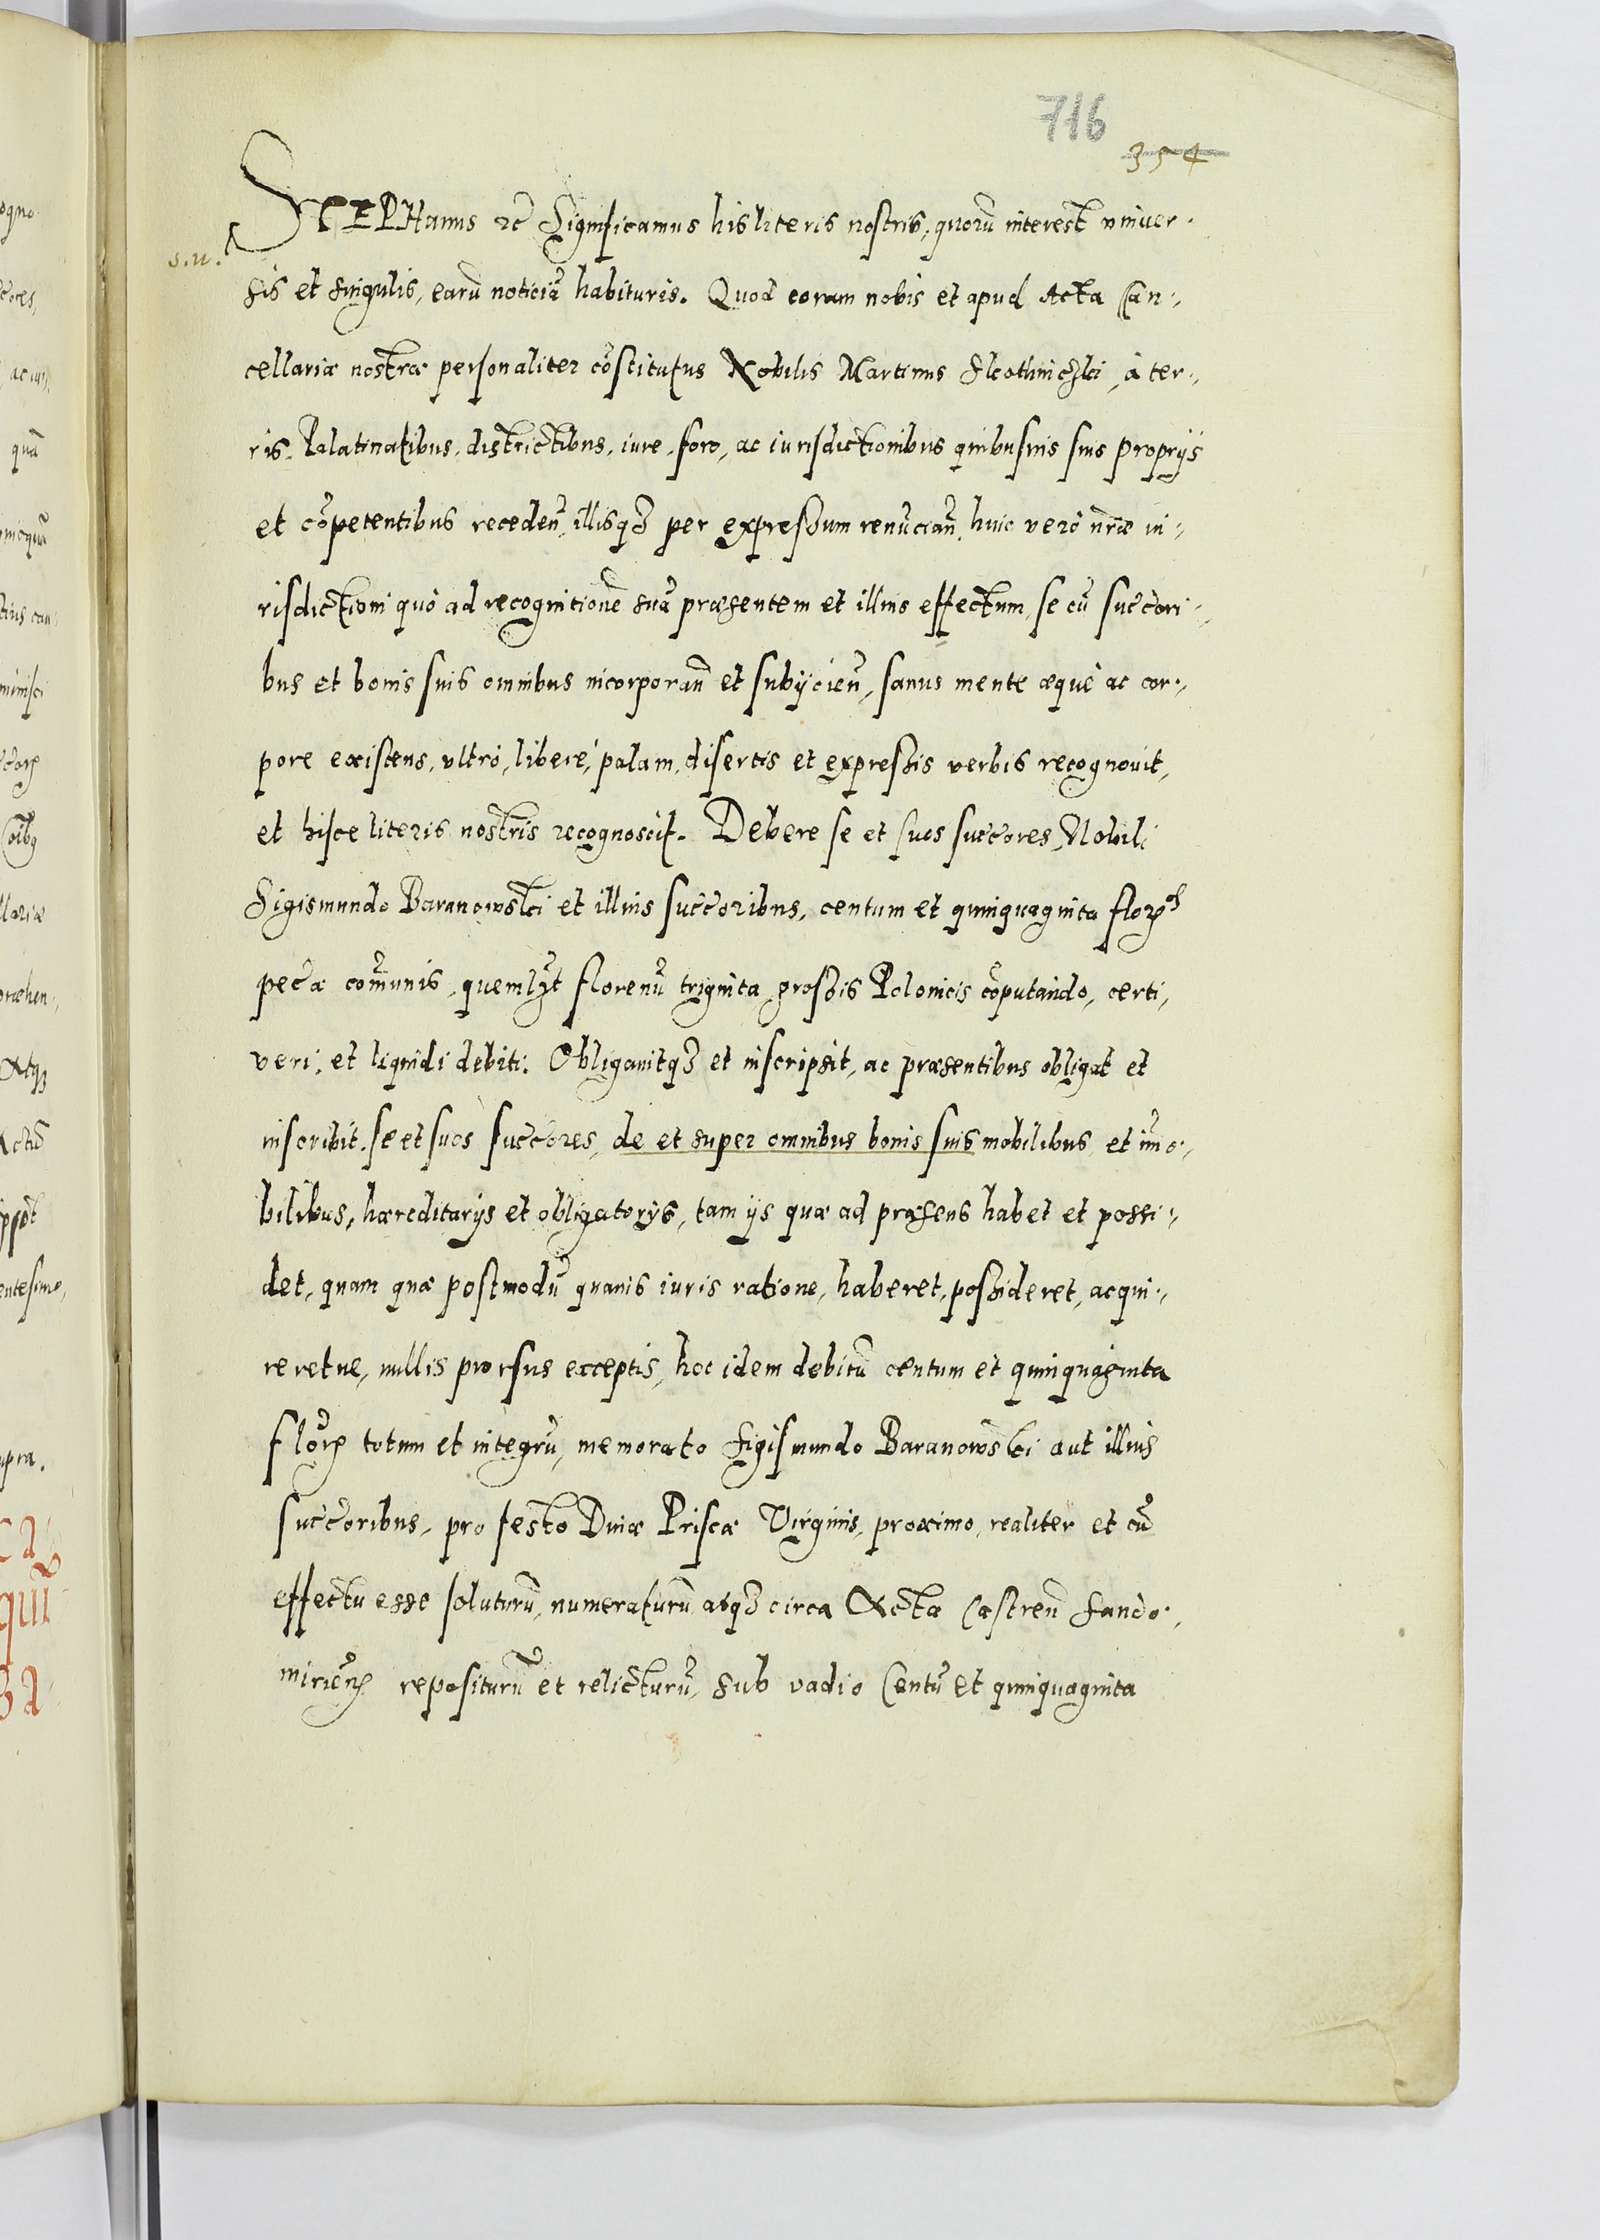 716
354
STEPHanus ꝛc̃ Significamus his literis nostris, quorũ interest vniuer⸗
s.u.
sis et singulis, earũ noticiã habituris. Quod coram nobis et apud Acta Can⸗
cellariæ nostræ personaliter cõstitutus Nobilis Martinus à ter⸗
ris, Palatinatibus, districtibus, iure, foro, ac iurisdictionibus quibusuis suis proprijs
et cõpetentibus recedeñ, illisqꝫ per expressum renũciañ, huic verò nr̃æ iu⸗
risdictioni quò ad recognitionẽ suã præsentem et illius effectum, se cũ succ̃ori⸗
bus et bonis suis omnibus incorporañ et subijcieñ, sanus mente æquè ac cor⸗
pore existens, vltrò, liberè, palam, disertis et expressis verbis recognouit,
et hisce literis nostris recognoscit. Debere se et suos succ̃ores, Nobili
Sigismundo Baranowski et illius succ̃oribus, centum et quinquaginta floꝝ
pec̃æ com̃unis, quemlꝫt florenũ triginta grossis Polonicis cõputando, certi,
veri, et liquidi debiti. Obligauitqꝫ et inscripsit, ac præsentibus obligat et
inscribit, se et suos succ̃ores, de et super omnibus bonis suis mobilibus et im̃o⸗
bilibus, hæreditarijs et obligatorijs, tam ijs quæ ad præsens habet et possi⸗
det, quam quæ postmodũ quauis iuris ratione, haberet, possideret, acqui⸗
reretue, nullis prorsus exceptis, hoc idem debitũ centum et quinquaginta
floꝝ totum et integrũ, memorato Sigismundo Baranowski aut illius
succ̃oribus, pro festo Diuæ Priscæ Virginis, proximo, realiter et cũ
effectu esse soluturũ, numeraturũ atqꝫ circa Acta Castreñ Sando⸗
mirieñ repositurũ et relicturũ, sub vadio Centũ et quinquaginta